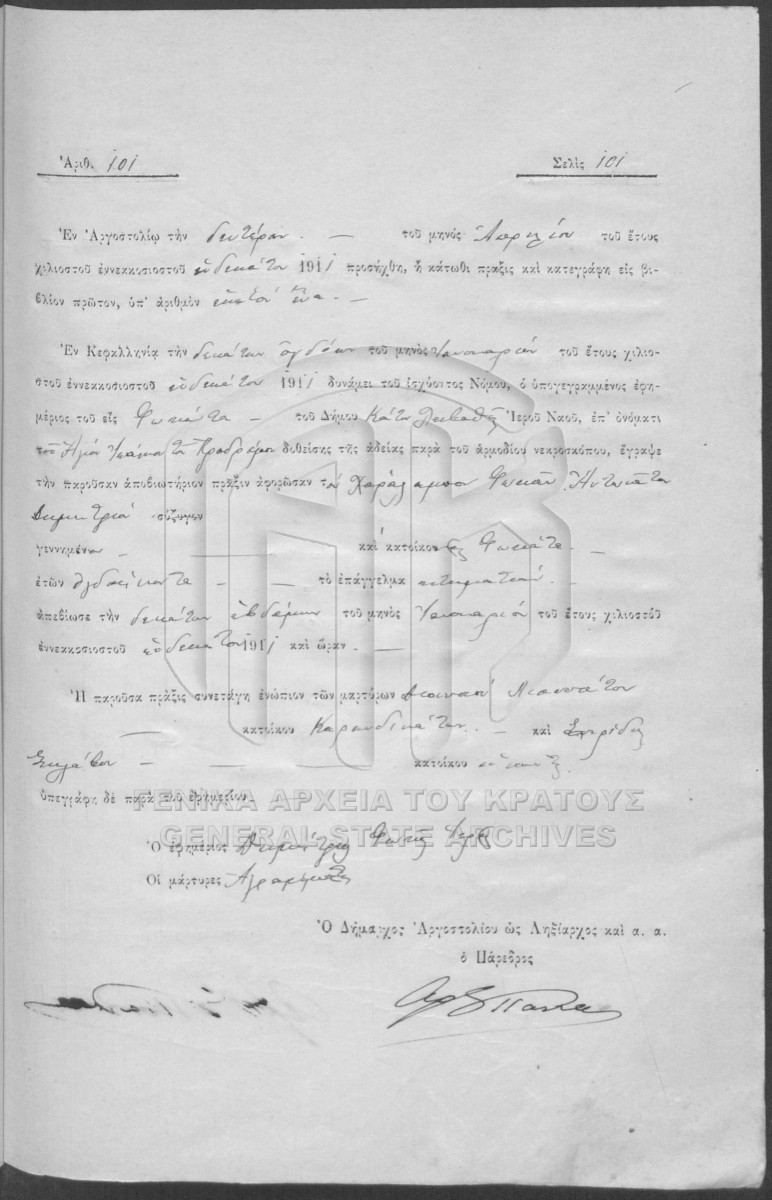 Ἀριθ. 101 Σελὶς 101
Ἐν Ἀργοστολίῳ τὴν δευτέραν. — τοῦ μηνὸς Ἀπριλίου τοῦ ἔτους
χιλιοστοῦ ἐννεκκοσιοστοῦ ἑνδεκάτου 1911 προσήχθη, ἡ κάτωθι πρᾶξις καὶ κατεγράφη εἰς βι-
βλίον πρῶτον, ὑπ' ἀριθμὸν ἑκατὸν ἕνα. —
Ἐν Κεφαλληνίᾳ τὴν δεκάτην ὀγδόην τοῦ μηνὸς Ἰανουαρίου τοῦ ἔτους χιλιο-
στοῦ ἐννεκκοσιοστοῦ ἑνδεκάτου 1911 δυνάμει τοῦ ἰσχύοντος Νόμου, ὁ ὑπογεγραμμένος ἐφη-
μέριος τοῦ εἰς Φωκάτα — τοῦ Δήμου Κάτω Λειβαθοῦς Ἱεροῦ Ναοῦ, ἐπ' ὀνόματι
τοῦ Ἁγίου Ἰωάννου τοῦ Προδρόμου δοθείσης τῆς ἀδείας παρὰ τοῦ ἁρμοδίου νεκροσκόπου, ἔγραψε
τὴν παροῦσαν ἀποβιωτήριον πρᾶξιν ἀφορῶσαν τὸν Χαράλαμπον Φωκᾶν
Δημητρίου σύζυγον
γεννημένον — καὶ κάτοικον εἰς Φωκάτα. —
ἐτῶν ὀγδοήκοντα — — τὸ ἐπάγγελμα κτηματίου. —
ἀπεβίωσε τὴν δεκάτην ἑβδόμην τοῦ μηνὸς Ἰανουαρίου τοῦ ἔτους χιλιοστοῦ
ἐννεκκοσιοστοῦ ἑνδεκάτου 1911 καὶ ὥραν. —
Ἡ παροῦσα πρᾶξις συνετάγη ἐνώπιον τῶν μαρτύρων Διονυσίου
— κατοίκου — καὶ Σπυρίδωνος
— κατοίκου
ὑπεγράφη δὲ παρὰ τοῦ ἐφημερίου.
ΓΕΝΙΚΑ ΑΡΧΕΙΑ ΤΟΥ ΚΡΑΤΟΥΣ
GENERAL STATE ARCHIVES
Ὁ ἐφημέριος Δημήτριος Φωκᾶς Ἱερεὺς
Οἱ μάρτυρες Ἀγράμματοι
Ὁ Δήμαρχος Ἀργοστολίου ὡς Ληξίαρχος καὶ α. α.
ὁ Πάρεδρος